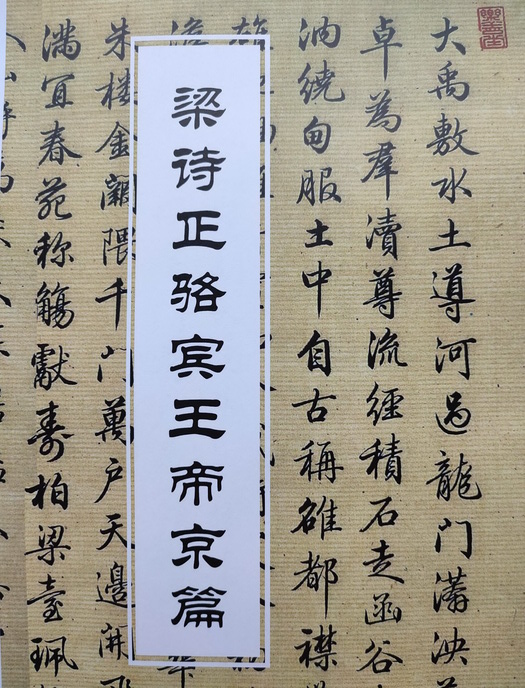 大禹敷水土導河過龍門
卓為羣瀆尊流經積石走函谷
汭繞甸服土中自古稱雒都襟
梁诗正骆宾王帝京篇
朱樓金闕隈千門萬户天邊開
滿宜春苑称觴獻壽柏梁臺珮